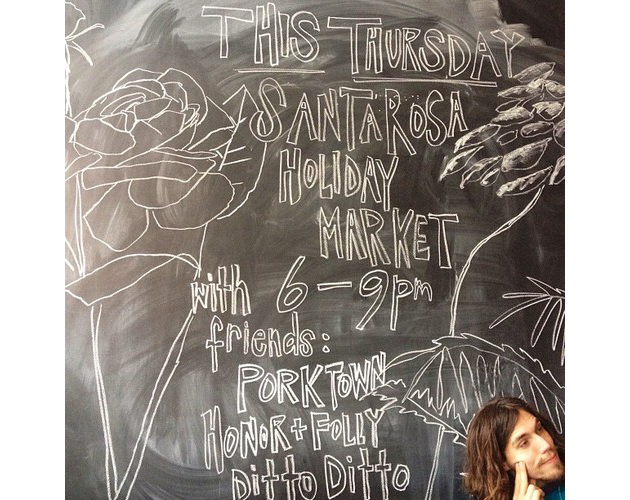 THIS THURSDAY
SANTA ROSA
HOLIDAY
MARKET
6-9pm
with
friends:
PORKTOWN
HONOR + FOLLY
Ditto Ditto